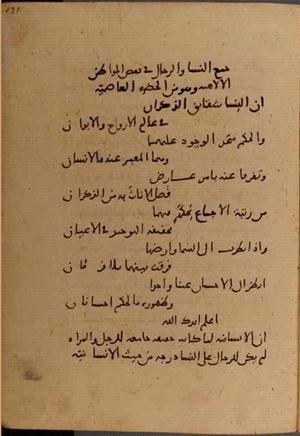 جمع النسا والرجال في بعض المواطن
الالاهية وهو من الحضرة العاصمية
ان النسا شقايق الذكران
في عالم الارواح والابدان
والحكم متحد الوجود عليهما
وهما المعبر عنه بالانسان
وتفرقا عنه بامر عارض
فصل الاناث به من الذكران
من رتبة الاجماع يحكم فيهما
بحقيقة التوحيد في الاعيان
واذا نظرت الى السما وارضها
فرقت بينهما بلا فرقان
انظر الى الاحسان عينا واحدا
وظهوره بالحكم احسانان
اعلم ايدك الله
ان الانسانية لما كانت حقيقة جامعة للرجل والمراة
لم يكن للرجال على النسا درجة من حيث الانسانية